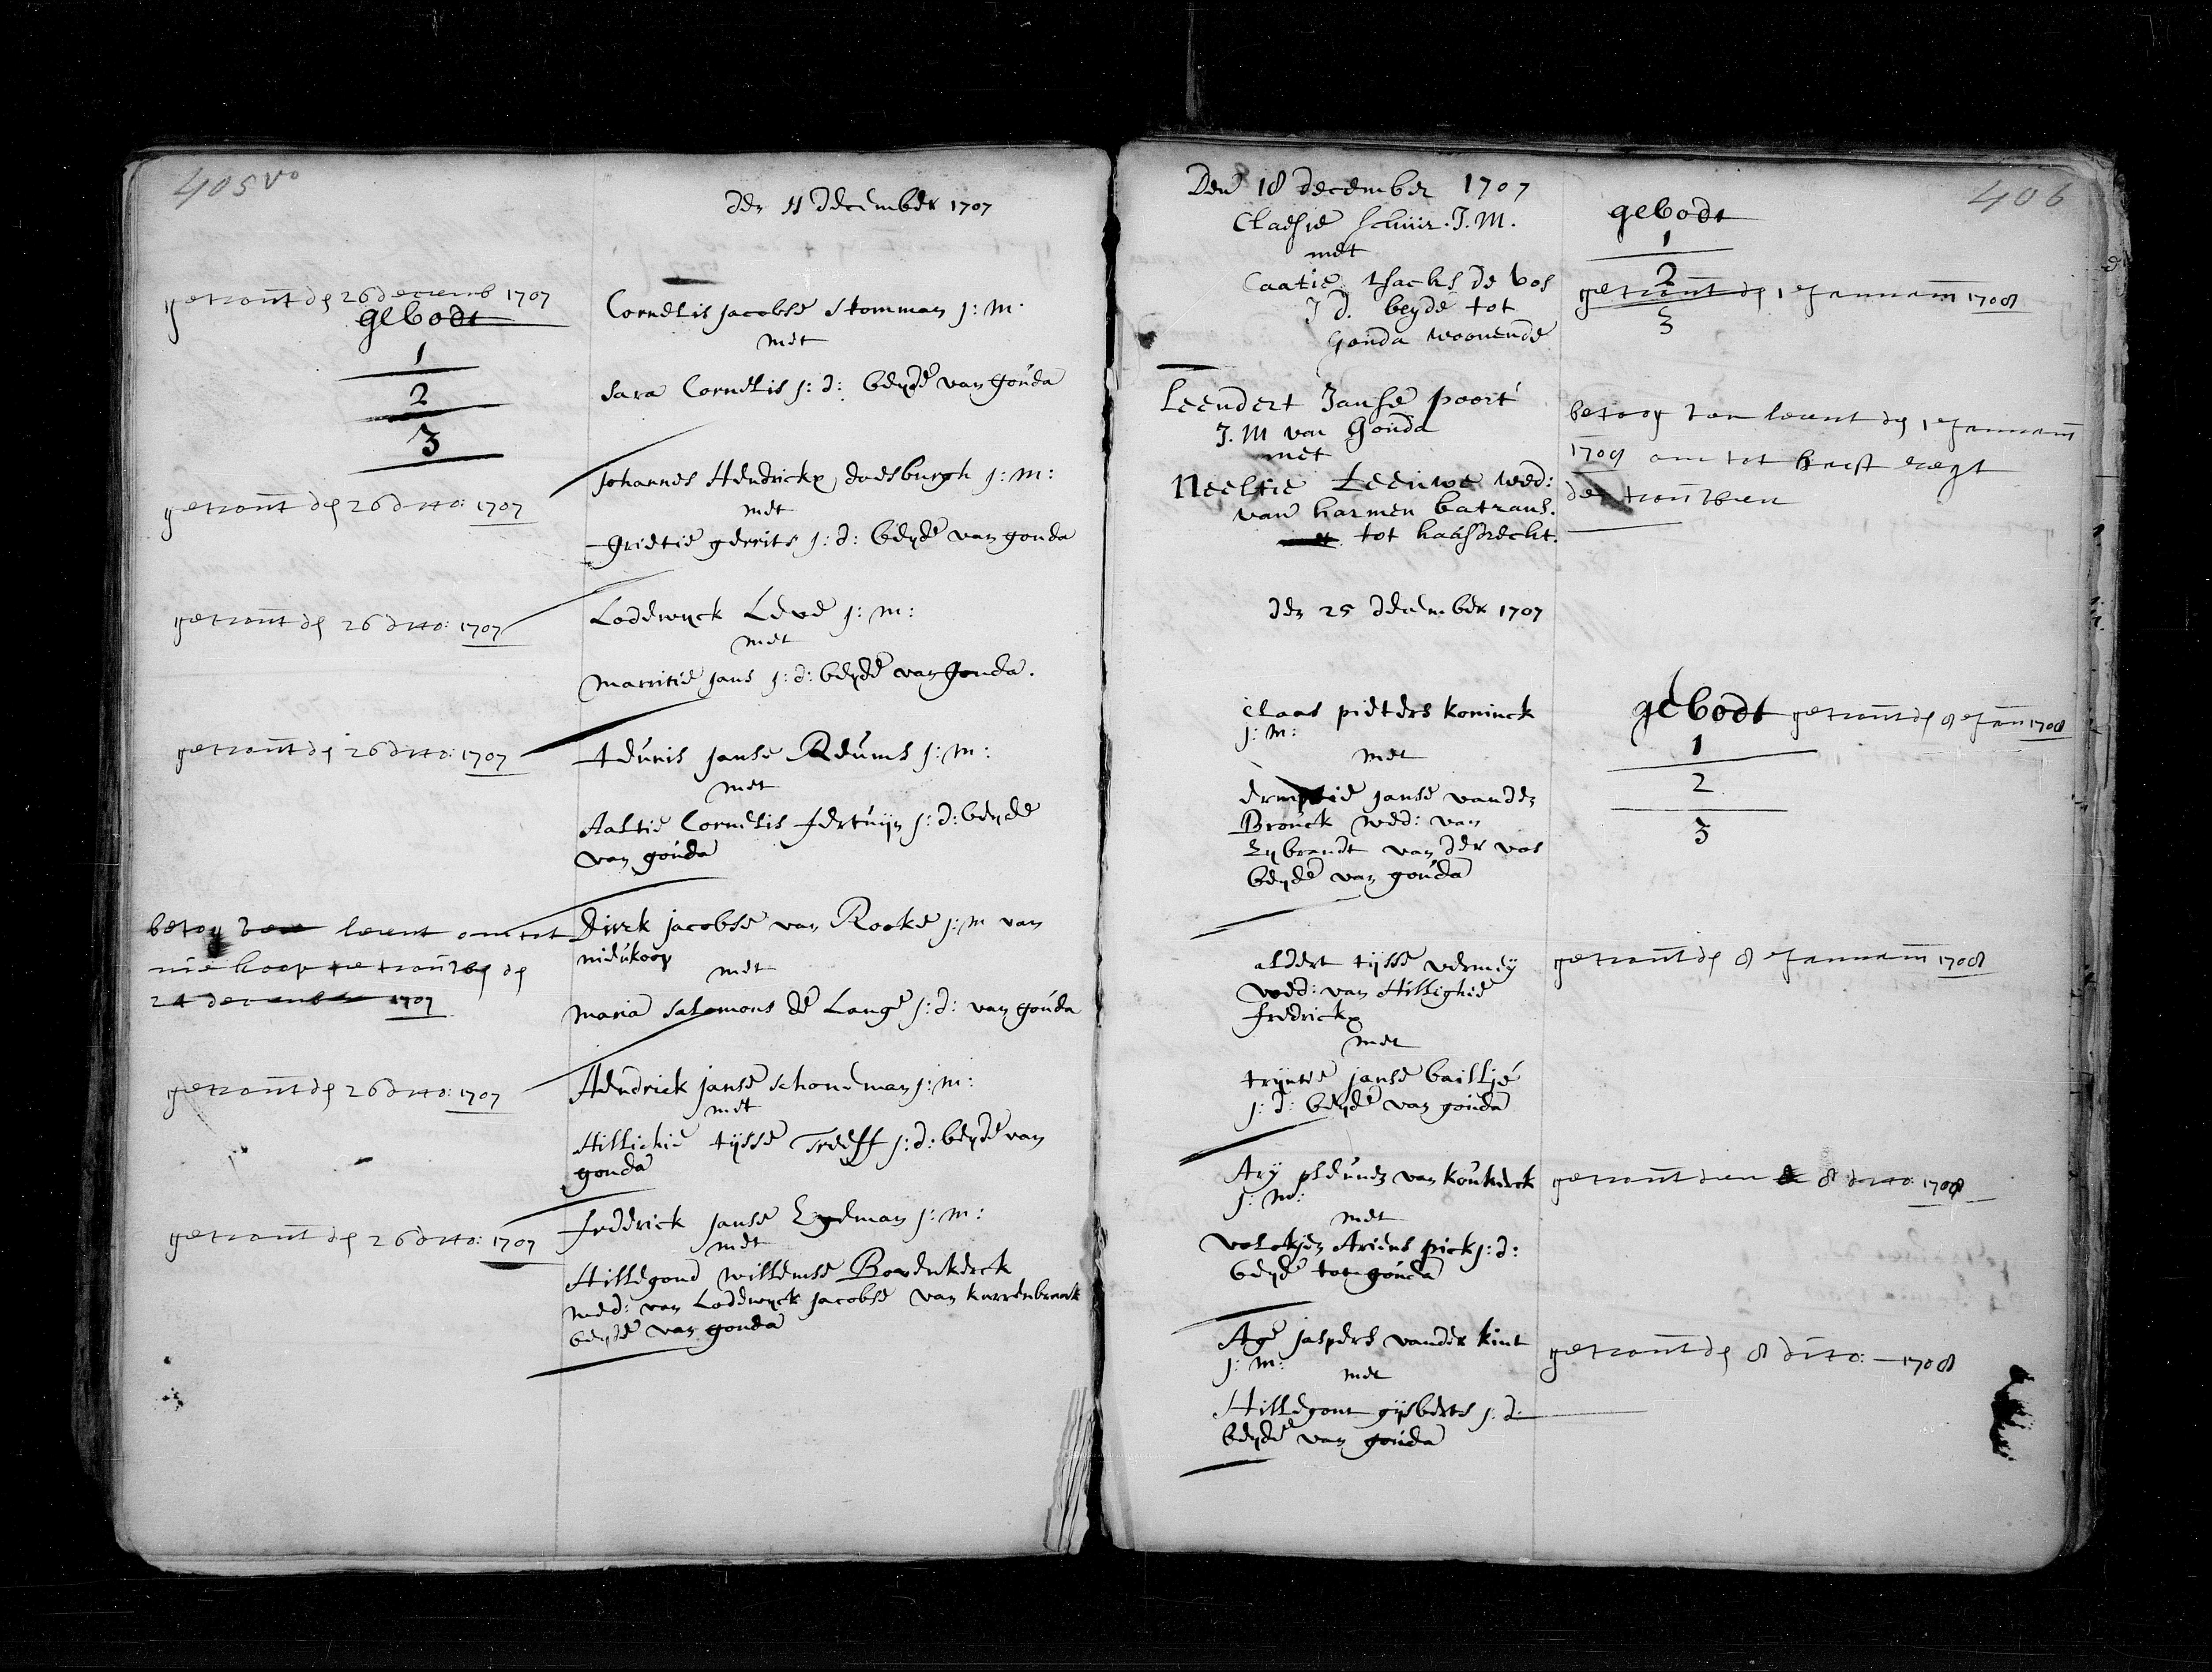 405 vo
den 11 december 1707
getrout den 26 decemb 1707
gebodt
1
2
3
Cornelis jacobse Stomman j: m:
met
Sara Cornelis j: d: beyde van gouda
getrout den 26 dito: 1707
Johannes Hendrickx doesburgh j: m:
met
Grietie gerrits j: d: beyde van gouda
getrout den 26 dito: 1707
Lodewyck Leve j: m:
met
Marritie jans j: d: beyde van gouda.
getrout den 26 dito: 1707
teunis janse Reums j: m:
met
Aaltie Cornelis fertuijn j: d: beyde
van gouda
betoog van levert om tot
niekoop te trouwen den
24 december 1707
Dirck jacobse van Rooke j: m van
nieukoop
met
Maria Salomons de Lange j: d: van gouda
getrout den 26 dito: 1707
Hendrick janse schoneman j: m:
met
Hillichie tijsse Treeff j: d: beyde van
gouda
getrout den 26 dito: 1707
fredrick janse Eyeman j: m:
met
Hillegond willemse Bovenkerck
wed: van Lodewyck jacobse van kurrenbraak
beyde van gouda
406
Den 18 december 1707
Claesie schuir. J. M.
met
Caatie Isacks de vos
J d. beyde tot
Gouda woonende
gebodt
1
2
getrout den 1 Jannuarij 1708
3
Leendert Janse poort
J. M van Gouda
met
Neeltie Leeuwe wed:
van harmen batrans.
tot haastrecht.
betoog van levert den 1 Jannuarij
1708 om tot hastregt
te trouwen
den 25 december 1707
Claas pieters koninck
j: m:
met
Ermptie janse vanden
Brouck wed: van
Eybrandt van der vos
beyde van gouda
gebodt getrout den 8 Jann 1708
1
2
3
aldert tijsse vermey
wed: van Hillighie
fredrickx
met
trijntie janse bailljé
j: d: beyde van gouda
getrout den 8 Jannuarij 1708
Ary pleunen van koukerck
j: m:
met
volckjen Ariens pick j: d:
beyde tot gouda
getrout den 8 dito: 1708
Age jaspers vander kint
j: m:
met
Hillegont gijsberts j: d:
beyde van gouda
getrout den 8 dito: 1708